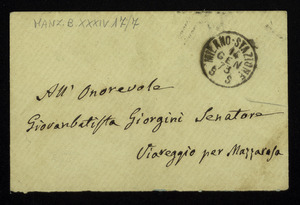 MANZ.B.XXXIV.17/7
MILANO-STAZIONE
All' Onorevole
Giovanbatista Giorgini Senatore
Viareggio per Mazzarosa